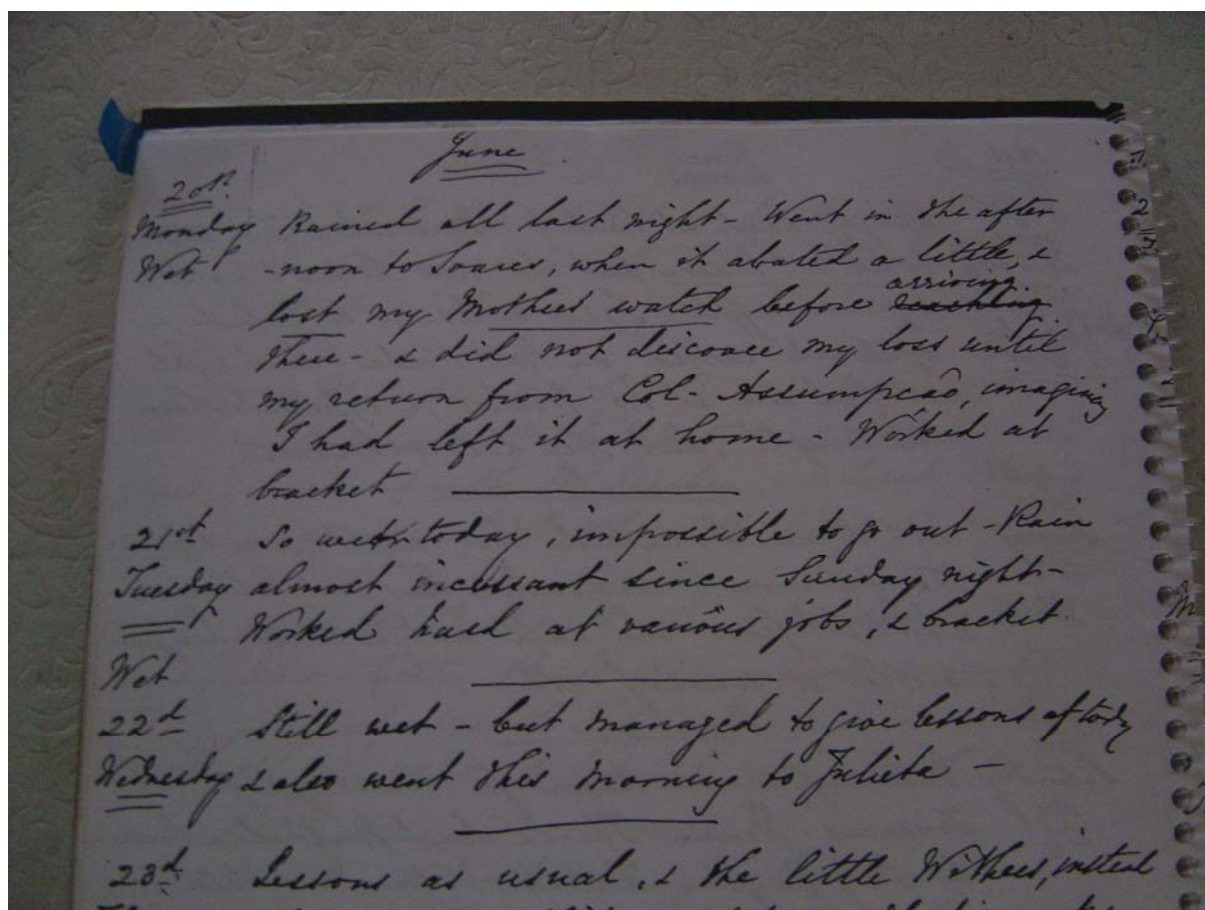 June
20th
Monday Rained all last night - Went in the after
Wet -noon to Soares, when it abated a little, &
arriving
lost my Mother's watch before reaching
there - & did not discover my loss until
my return from Col. Assumpcaõ, imagining
I had left it at home - Worked at
bracket
21st So wet today, impossible to go out - Rain
Tuesday almost incessant since Sunday night -
Worked hard at various jobs, & bracket.
Wet
22d Still wet - but managed to give lessons of today
Wednesday & also went this morning to Julieta -
23d Lessons as usual, & the little Withers, instead